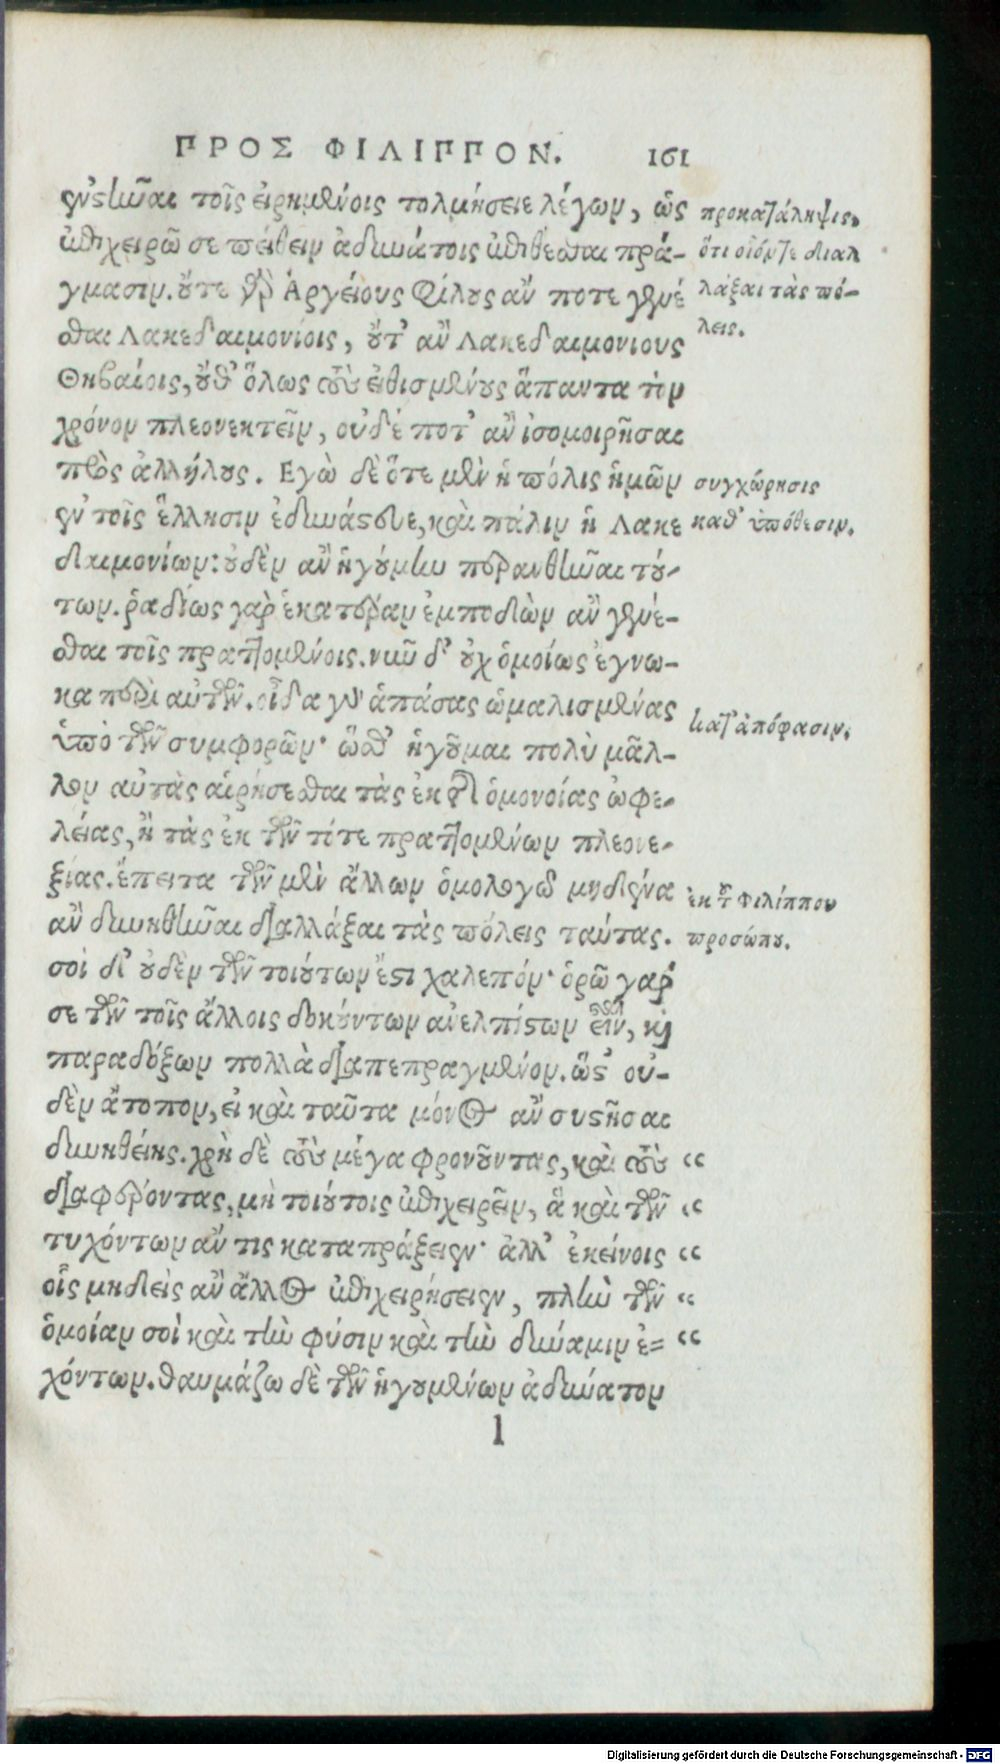 ΠΡΟΣ ΦΙΛΙΠΠΟΝ. 161
ἐνστῆναι τοῖς εἰρημένοις τολμήσειε λέγων, ὡς
ἐπιχειρῶ σε πείθειν ἀδυνάτοις ἐπιθέσθαι πρά-
γμασιν. οὔτε γὰρ Ἀργείους φίλους ἄν ποτε γενέ
σθαι Λακεδαιμονίοις, οὔτ' ἂν Λακεδαιμονιους
Θηβαίοις, οὔθ' ὅλως τοὺς εἰθισμένους ἅπαντα τὸν
χρόνον πλεονεκτεῖν, οὐδέ ποτ' ἂν ἰσομοιρῆσαι
πρὸς ἀλλήλους. Εγὼ δὲ ὅτε μὲν ἡ πόλις ἡμῶν
ἐν τοῖς ἕλλησιν ἐδυνάστευε, καὶ πάλιν ἡ Λακε
δαιμονίων: οὐδὲν ἂν ἡγούμην περανθῆναι τού-
των. ῥαδίως γὰρ ἑκατέραν ἐμποδὼν ἂν γενέ-
σθαι τοῖς πραττομένοις. νῦν δ' οὐχ ὁμοίως ἔγνω-
κα περὶ αὐτῶν. οἶδα γὰρ ἁπάσας ὡμαλισμένας
ὑπὸ τῶν συμφορῶν· ὥσθ' ἡγοῦμαι πολὺ μᾶλ-
λον αὐτὰς αἱρήσεσθαι τὰς ἐκ τῆς ὁμονοίας ὠφε-
λείας, ἢ τὰς ἐκ τῶν τότε πραττομένων πλεονε-
ξίας. ἔπειτα τῶν μὲν ἄλλων ὁμολογῶ μηδένα
ἂν δυνηθῆναι διαλλάξαι τὰς πόλεις ταύτας.
σοὶ δ' οὐδὲν τῶν τοιούτων ἔστι χαλεπόν· ὁρῶ γάρ
σε τῶν τοῖς ἄλλοις δοκούντων ἀνελπίστων εἶναι, καὶ
παραδόξων πολλὰ διαπεπραγμένον. ὥστ' οὐ-
δὲν ἄτοπον, εἰ καὶ ταῦτα μόνος ἂν συστῆσαι
δυνηθείης. χρὴ δὲ τοὺς μέγα φρονοῦντας, καὶ τοὺς “
διαφέροντας, μὴ τοιούτοις ἐπιχειρεῖν, ἃ καὶ τῶν “
τυχόντων ἄν τις καταπράξειεν· ἀλλ' ἐκείνοις “
οἷς μηδεὶς ἂν ἄλλος ἐπιχειρήσειεν, πλὴν τῶν “
ὁμοίαν σοὶ καὶ τὴν φύσιν καὶ τὴν δύναμιν ἐ= “
χόντων. θαυμάζω δὲ τῶν ἡγουμένων ἀδύνατον
l
προκατάληψις,
ὅτι οἷόν τε διαλ
λάξαι τὰς πό-
λεις.
συγχώρησις
καθ' ὑπόθεσιν.
κατ' ἀπόφασιν.
ἐκ τοῦ Φιλίππου
προσώπου.
Digitalisierung gefördert durch die Deutsche Forschungsgemeinschaft - DFG